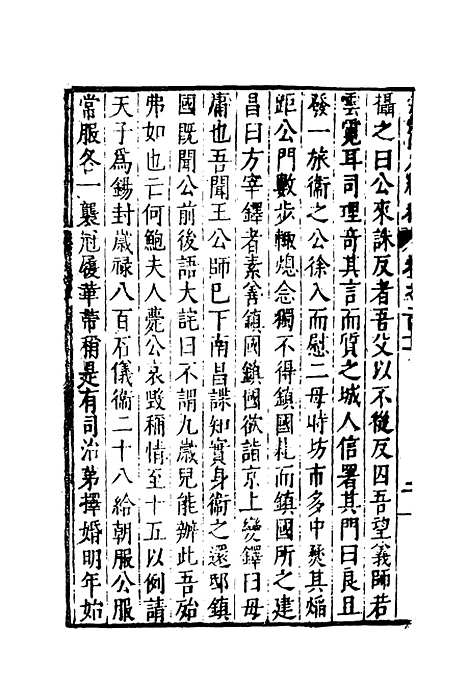 攝之曰公來誅反者吾父以不從反囚吾望義師若
雲霓耳司理奇其言而質之城人信署其門曰良且
發一旅衛之公徐入而慰二母時坊市多中燹其熖
距公門數步輙熄念獨不得鎮國耗而鎮國所之建
昌曰方宰鐸者素善鎮國鎮國欲詣京上變鐸曰毋
庸也吾聞王公師巳下南昌諜知實身衛之還邸鎮
國旣聞公前後語大詫曰不謂九歲兒能辦此吾殆
弗如也亡何鮑夫人薨公哀毀稱情至十五以例請
天子爲錫封歲禄八百石儀衛二十八給朝服公服
常服冬一襲冠履華帶稱是有司治弟擇婚明年始